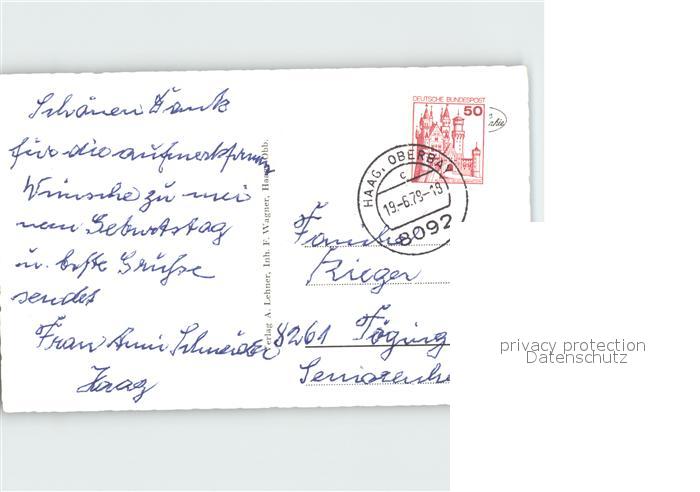 Schönen Dank
für die aufmerksamen
Wünsche zu mei
nem Geburtstag
u. beste Grüsse
sendet
Frau Anni Schneider
Haag
Verlag A. Lehner, Inh. F. Wagner, Haag/Obb.
DEUTSCHE BUNDESPOST
50
HAAG, OBERBAY
c
19.-6.79-19
8092
Familie
Rieger
8261 Töging
Seniorenhe
privacy protection
Datenschutz